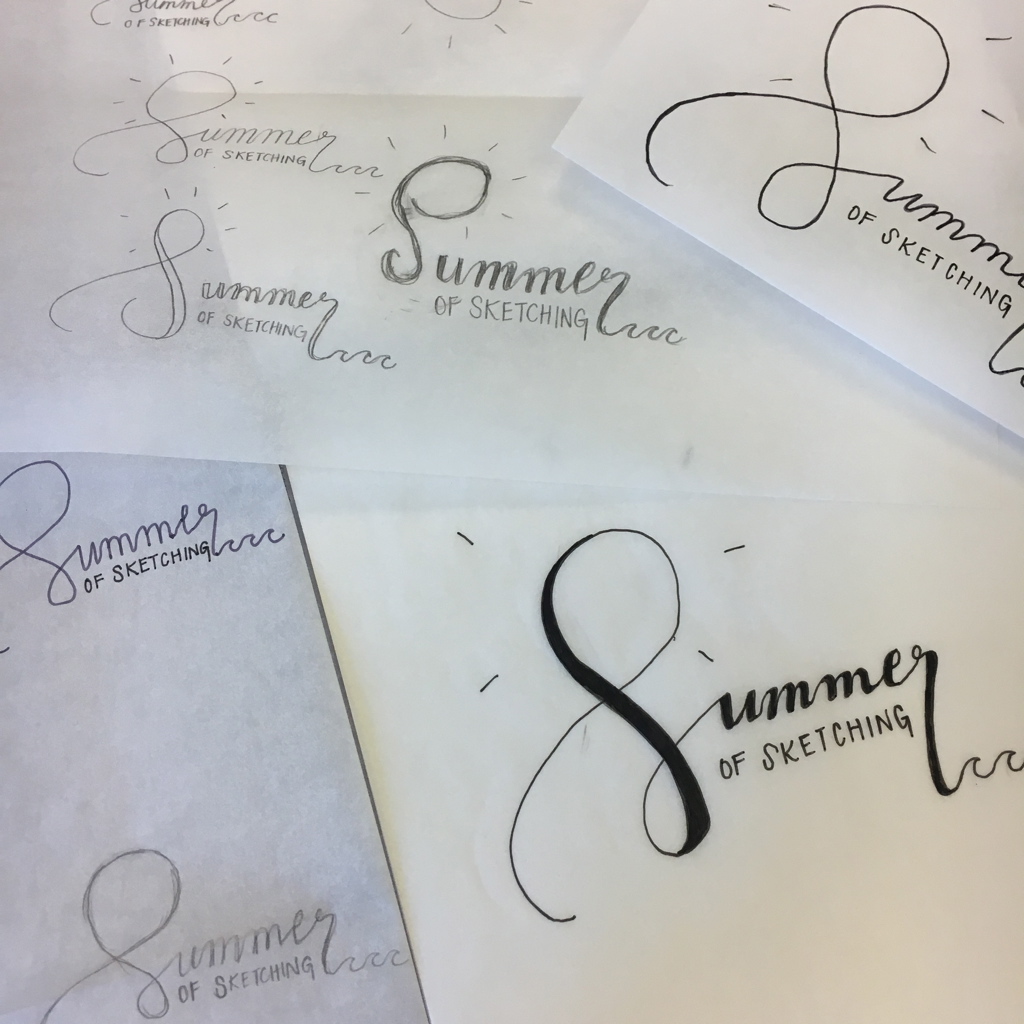 Summer
OF SKETCHING
Summer
OF SKETCHING
Summer
OF SKETCHING
Summer
OF SKETCHING
Summ
OF SKETCHING
Summer
OF SKETCHING
Summer
OF SKETCHING
Summer
OF SKETCHING